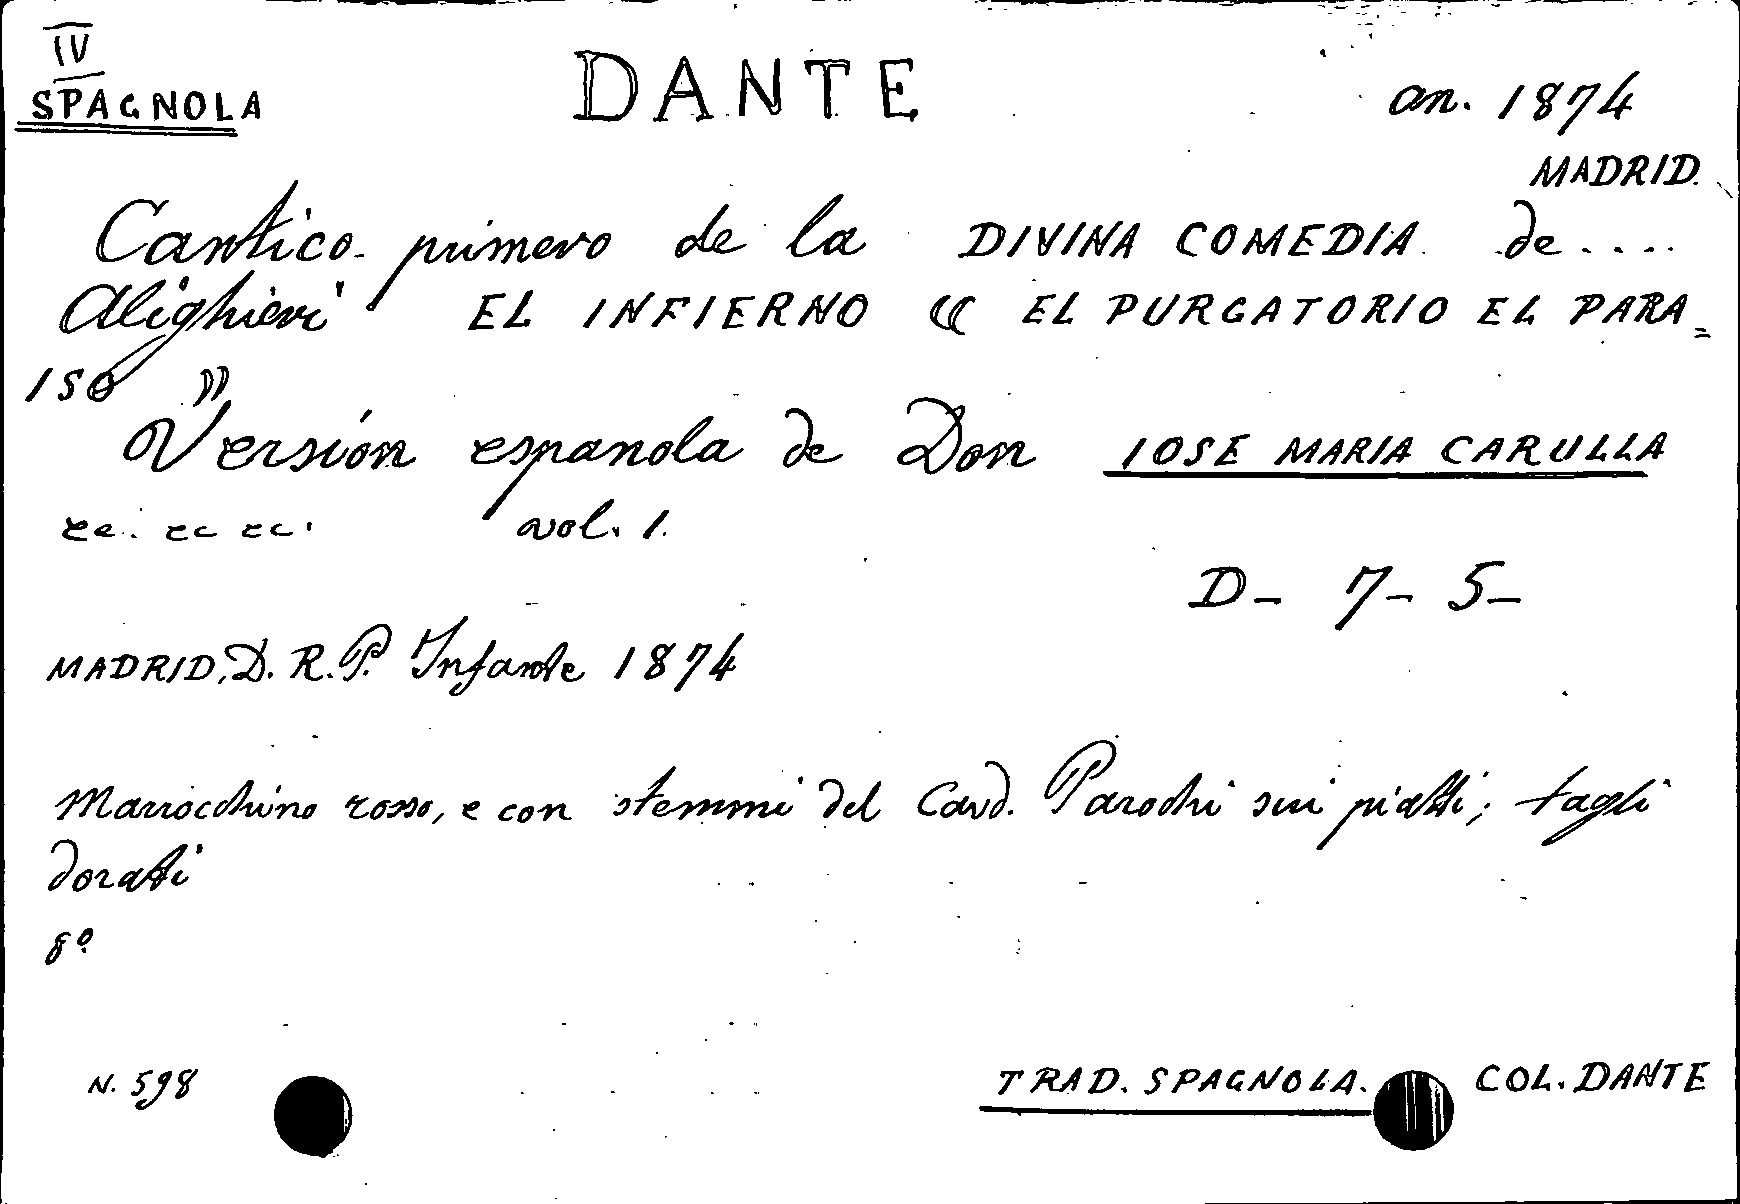 IV
SPAGNOLA
DANTE
an. 1874
MADRID.
Cantico primero de la DIVINA COMEDIA de ....
Alighieri EL INFIERNO (( EL PURGATORIO EL PARA=
ISO ))
Versión espanola de Don IOSE MARIA CARULLA
ec. ec ec. vol. 1.
D- 7- 5-
MADRID, D. R. P. Infante 1874
Marrocchino rosso, e con stemmi del Card. Parochi sui piatti; tagli
dorati
8º
N. 598
TRAD. SPAGNOLA. COL. DANTE